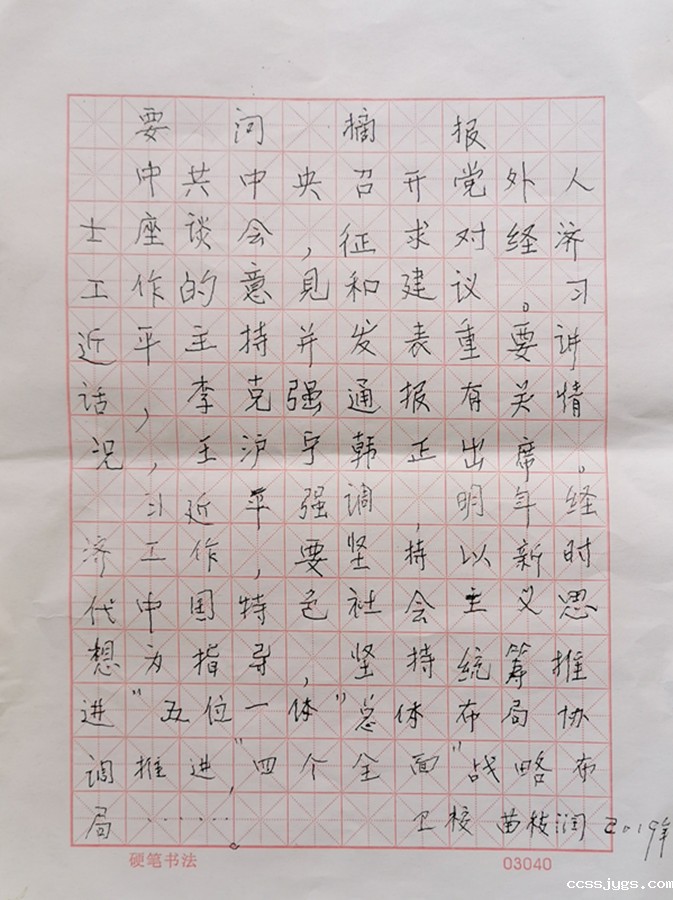 要问摘报
中共中央召开党外人
士座谈会,征求对经济
工作的意见和建议。习
近平主持并发表重要讲
话,李克强通报有关情
况,王沪宁韩正出席。
习近平强调,明年经
济工作,要坚持以新时
代中国特色社会主义思
想为指导,坚持统筹推
进"五位一体"总体布局协
调推进,"四个全面"战略布
局······。 卫校 苗枝润 2019年
硬笔书法 03040
ccssjygs.com